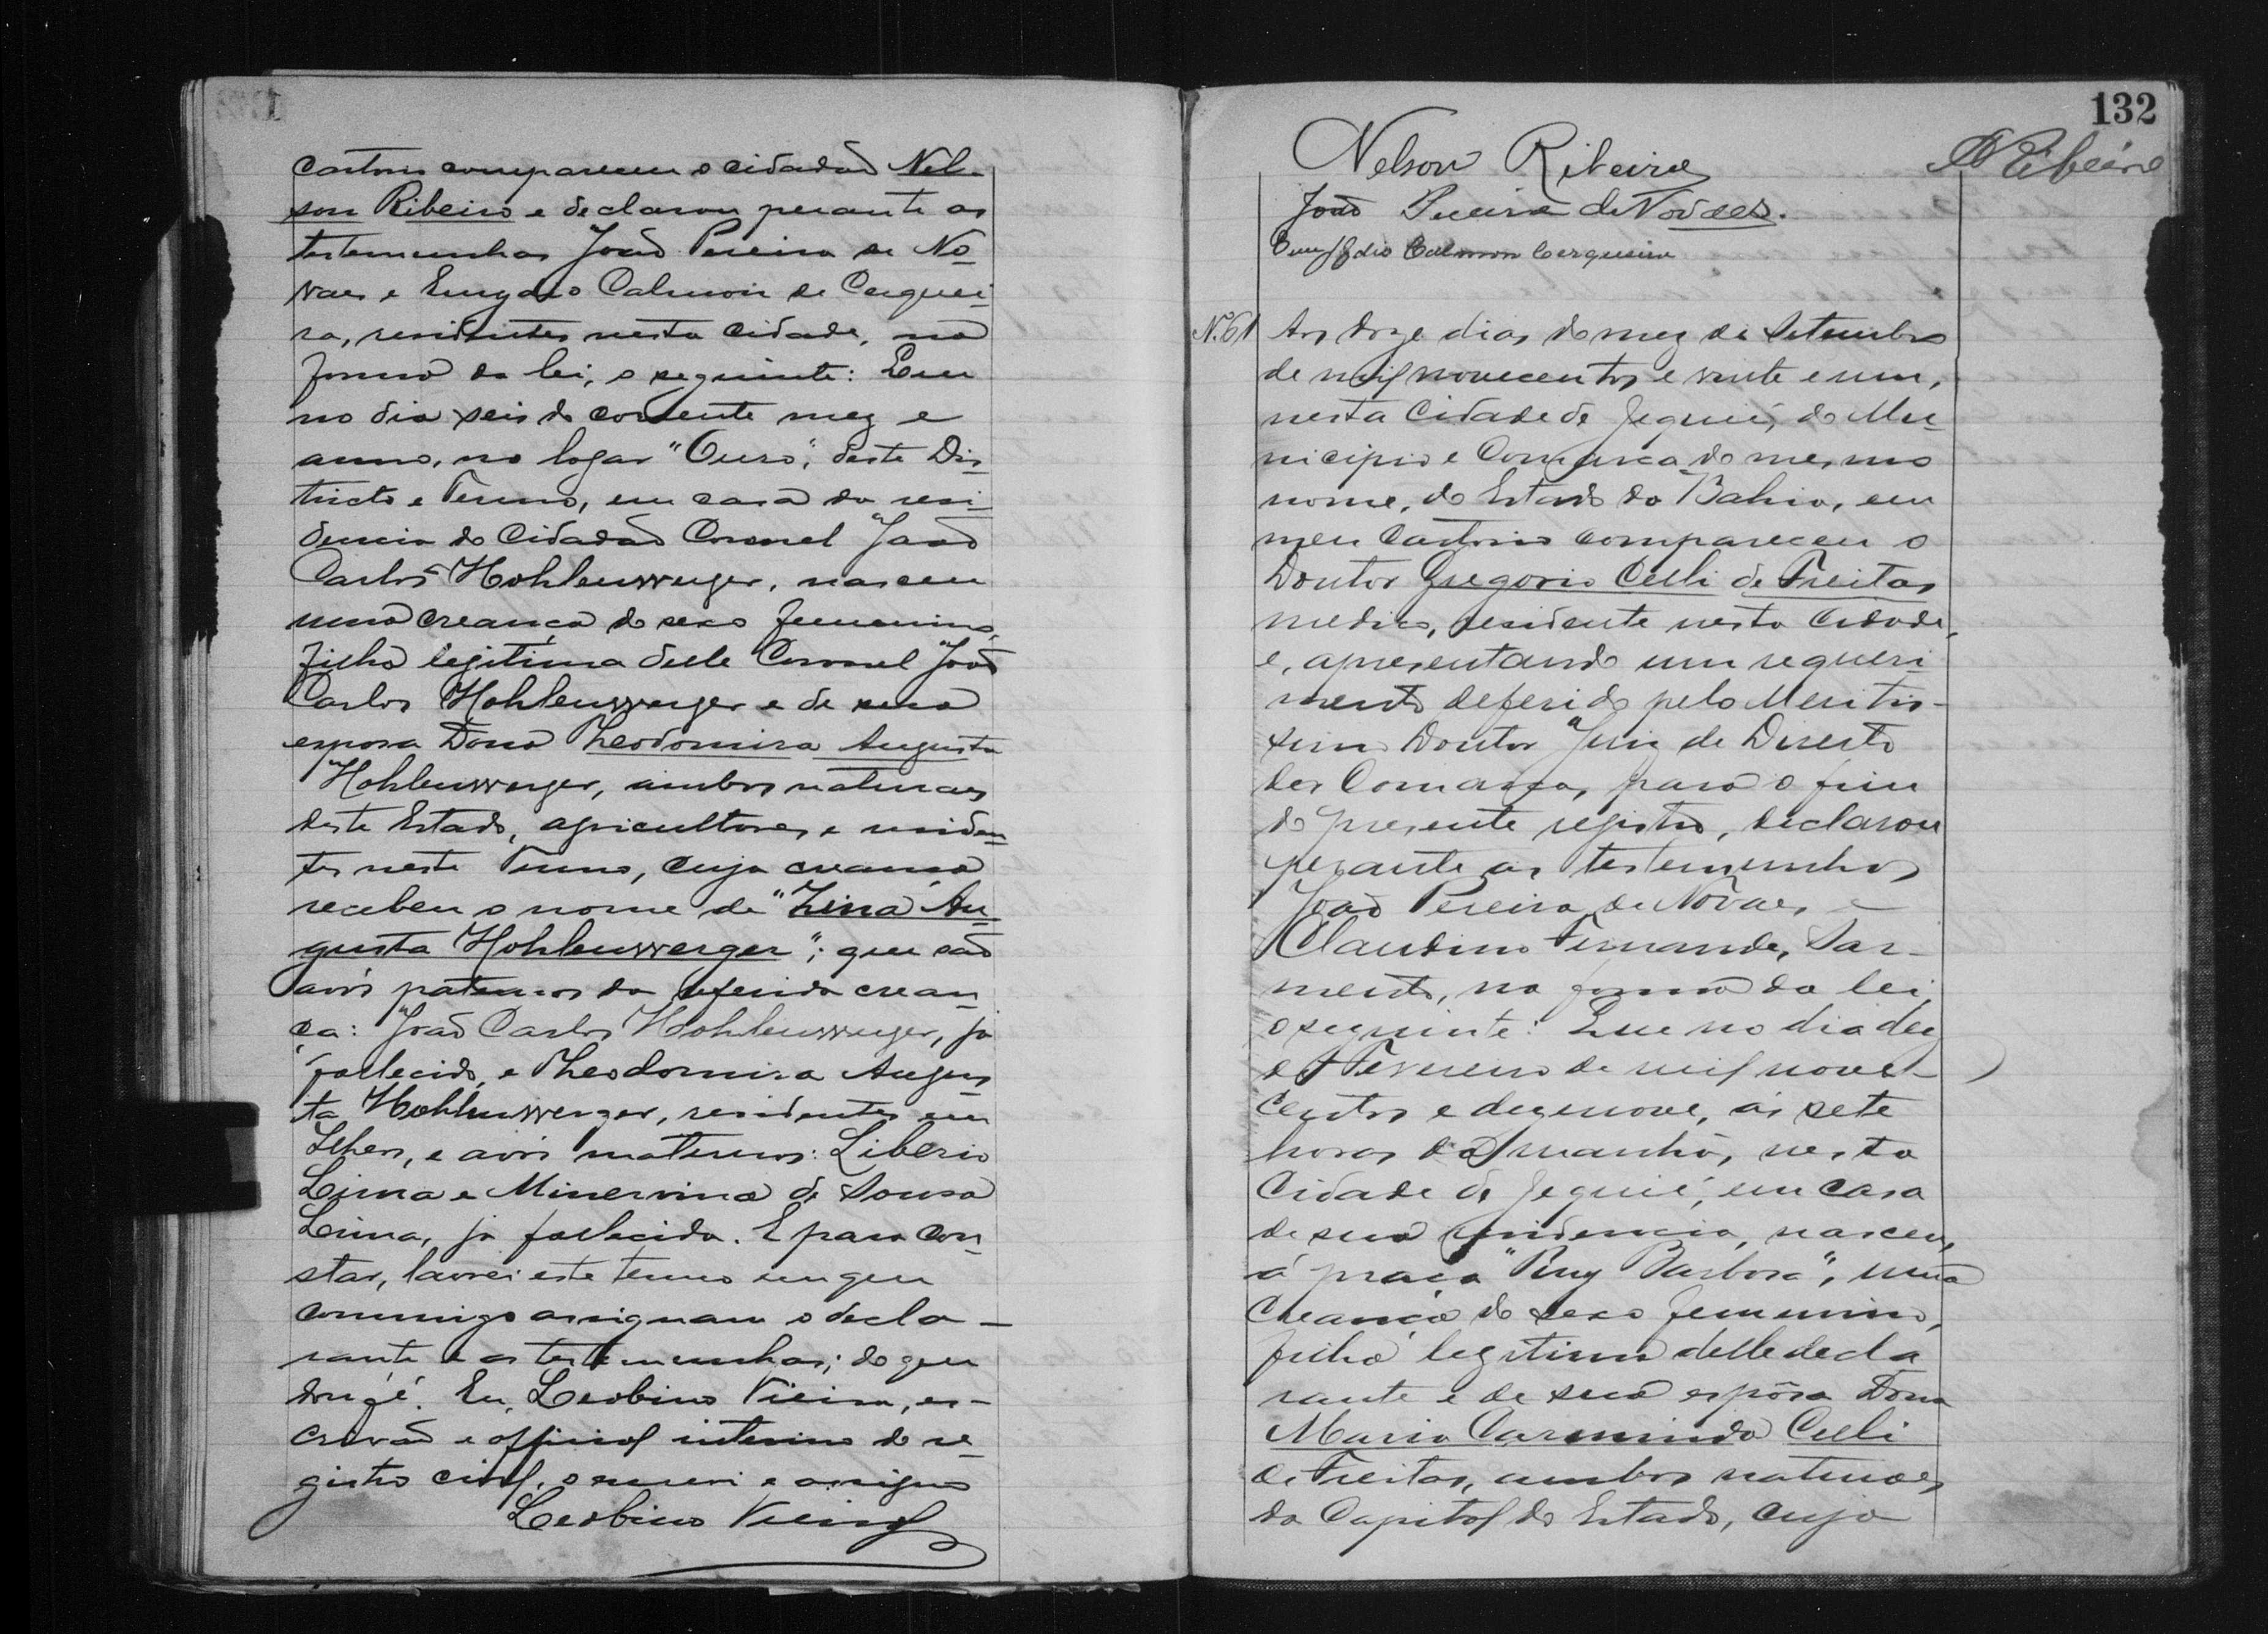 cartorio compareceu o cidadão Nel-
son Ribeiro e declarou perante as
testemunhas João Pereira de No-
vaes e Emygdio Calmon de Cerquei-
ra, residentes nesta cidade, na
forma da lei, o seguinte: Que
no dia seis do corrente mez e
anno, no logar "Ouro", deste Dis-
tricto e Termo, em casa da resi-
dencia do Cidadão Coronel João
Carlos Hohlenwerger, nasceu
uma creança do sexo femenino,
filha legitima delle Coronel João
Carlos Hohlenwerger e de sua
esposa Dona Theodomira Augusta
Hohlenwerger, ambos naturaes
deste Estado, agricultores e residen-
tes neste Termo, cuja creança
recebeu o nome de "Zina Au-
gusta Hohlenwerger"; que são
avós paternos da referida crean-
ça: João Carlos Hohlenwerger, já
fallecido, e Theodomira Augus-
ta Hohlenwerger, residentes em
Ilheos, e avós maternos: Liberio
Lima e Minervina de Sousa
Lima, já fallecida. E para con-
star, lavrei este termo em que
commigo assignam o decla-
rante e as testemunhas; do que
dou fé. Eu, Leobino Vieira, es-
crivão e official interino do re-
gistro civil, o escrevi e assigno
Leobino Vieira
132
Nelson Ribeiro
N Ribeiro
João Pereira de Novaes.
Emygdio Calmon Cerqueira
N. 61
Aos doze dias do mez de Setembro
de mil novecentos e vinte e um,
nesta Cidade de Jequié, do Mu-
nicipio e Comarca do mesmo
nome, do Estado da Bahia, em
meu Cartorio compareceu o
Doutor Gregorio Celli de Freitas
medico, residente nesta Cidade,
e, apresentando um requeri-
mento deferido pelo Meritis-
simo Doutor Juiz de Direito
da Comarca, para o fim
do presente registro, declarou
perante as testemunhas
João Pereira de Novaes e
Claudino Fernandes Sar-
mento, na forma da lei,
o seguinte: Que no dia dez
de Fevereiro de mil nove-
centos e dezenove, ás sete
horas da manhã, nesta
Cidade de Jequié, em casa
de sua residencia, nasceu,
á praça "Ruy Barbosa", uma
Creança do sexo femenino,
filha legitima delle decla-
rante e de sua espôsa Dona
Maria Carminda Celli
de Freitas, ambos naturaes
da Capital do Estado, cuja